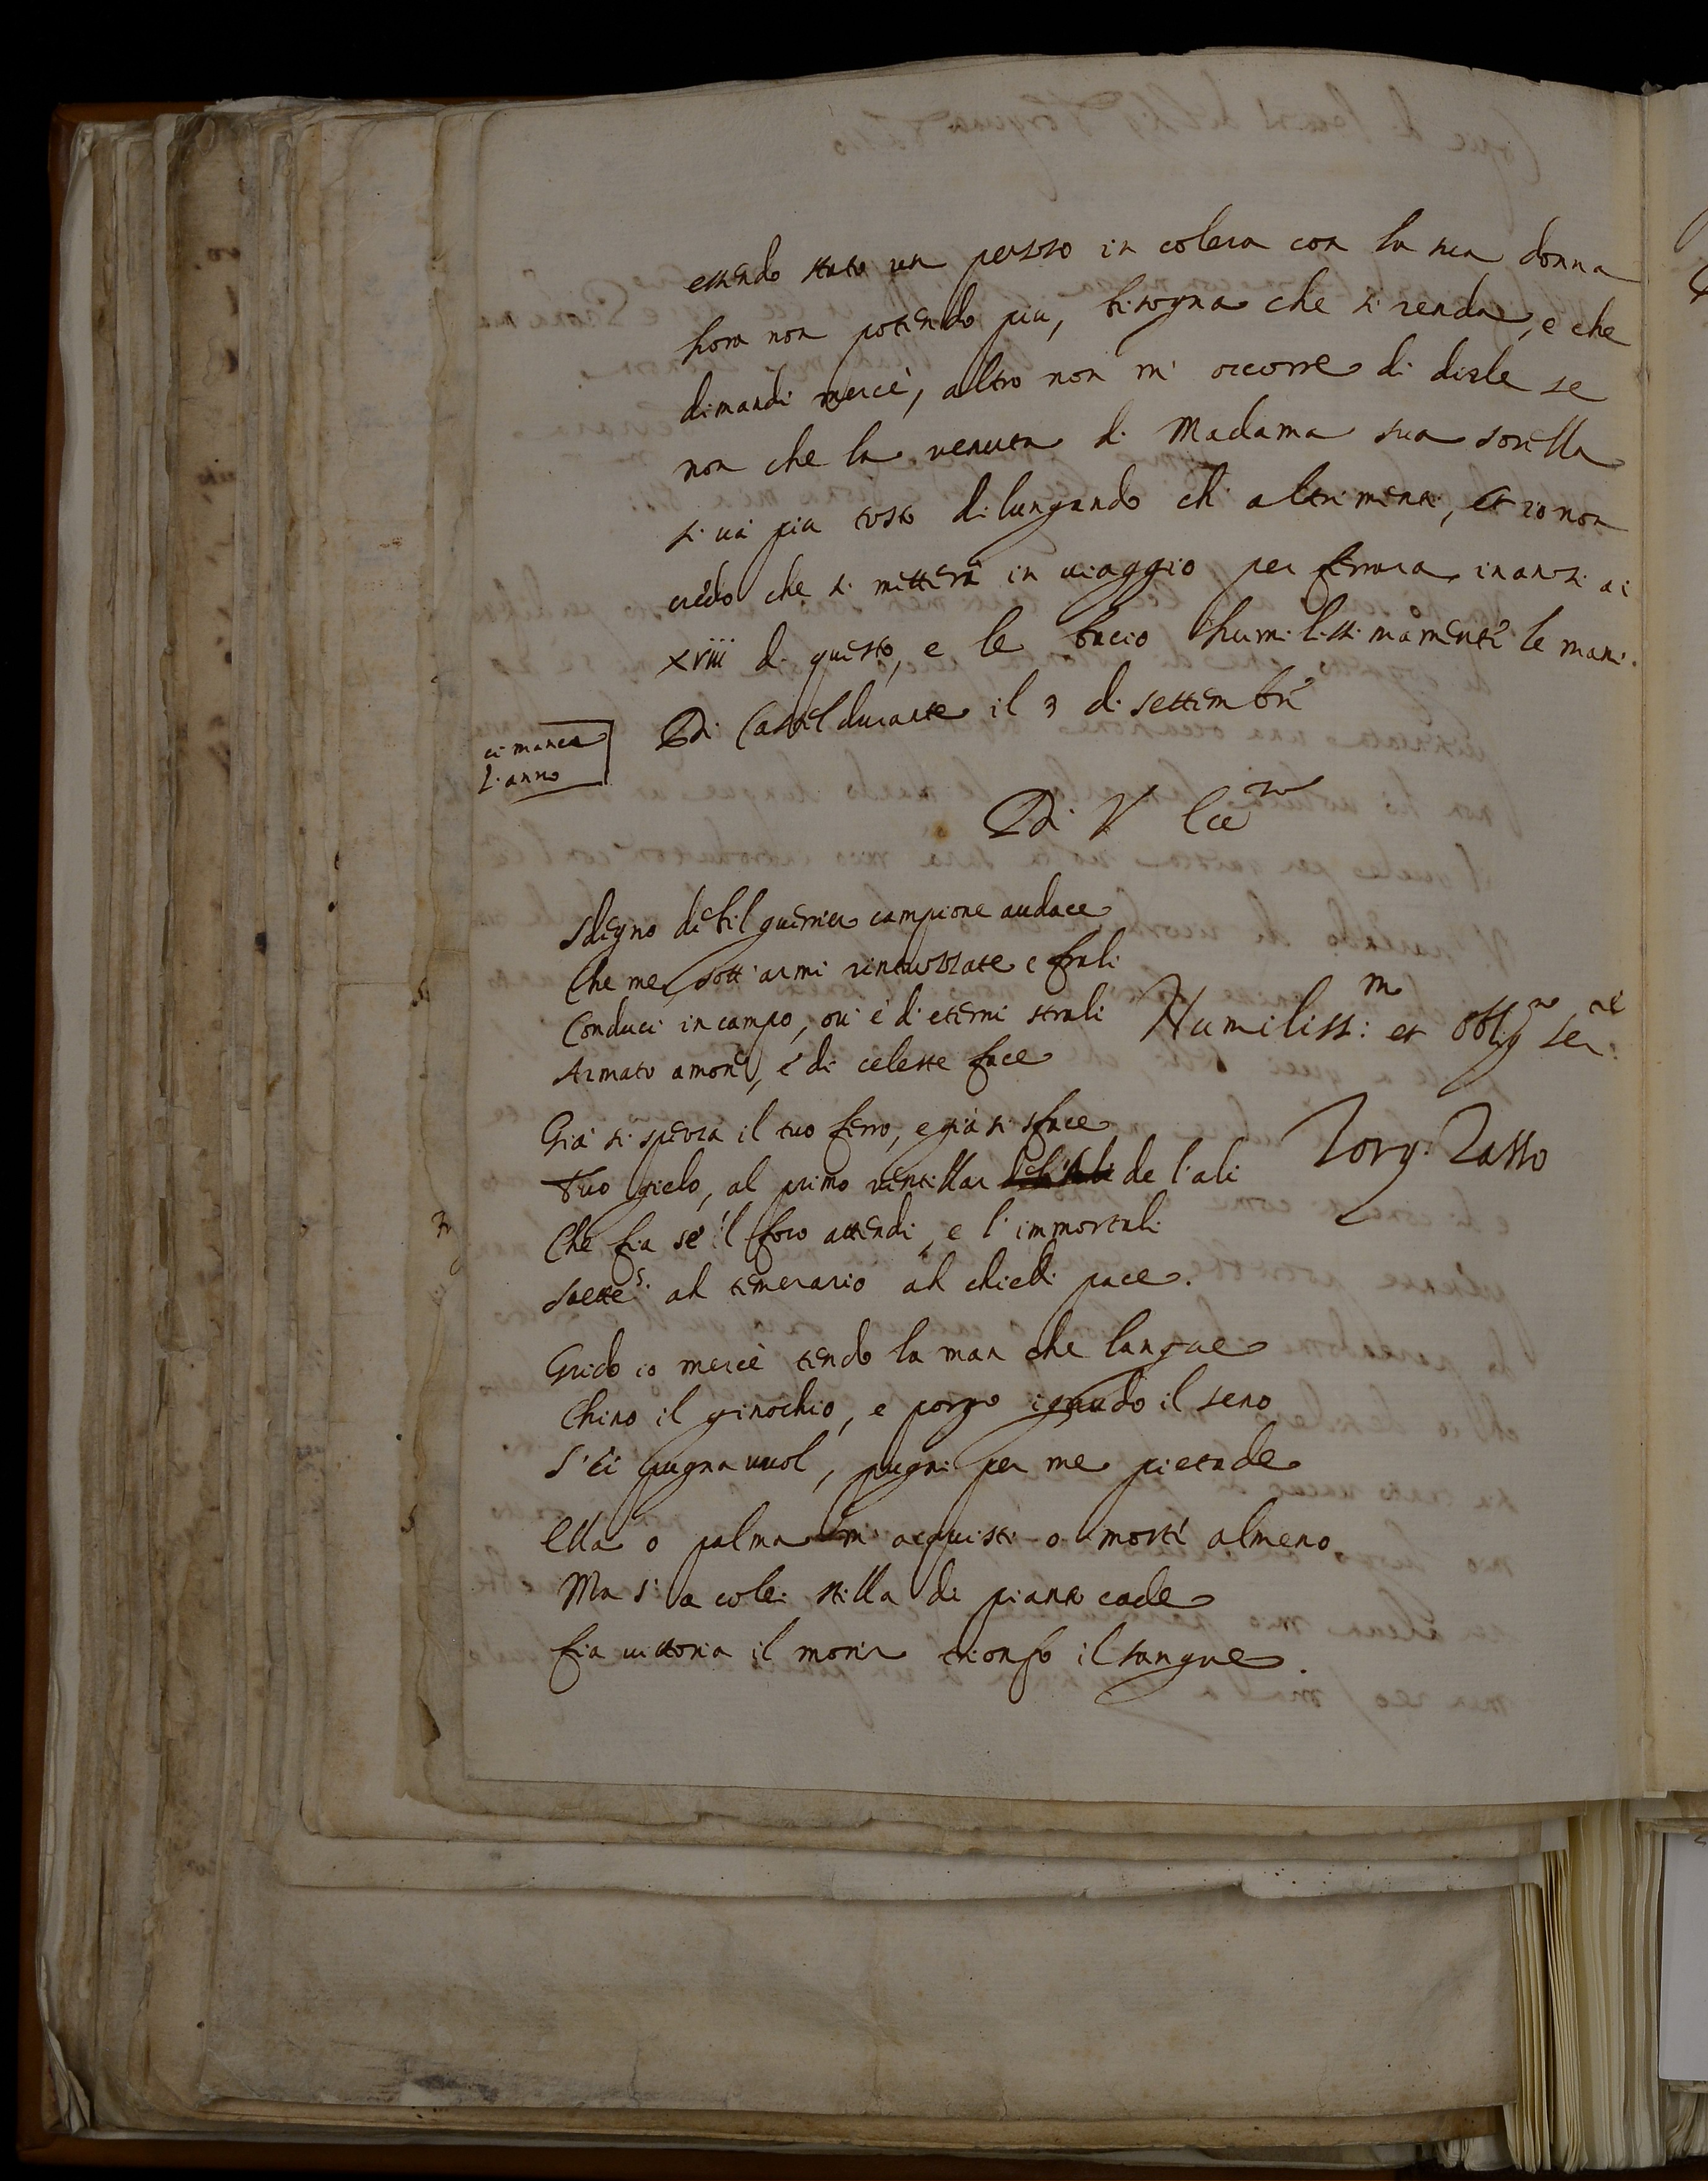 essendo stato un pezzo in colera con la sua donna
hora non potendo più, bisogna che si renda, e che
dimandi mercè, altro non m'occorre di dirle se
non che la venuta di Madama sua sorella
si và più tosto dilungando ch'altrimente, et io non
credo che si metterà in viaggio per ferrara inanzi ai
xviii di questo, e le bacio humilissimamente le mani.
Di Castel durante il 3 di settembre
ci manca
l'anno
Di V. Ecc.
Sdegno debil guerrier campione audace
Che me sott'armi rintuzzate e frali
Conduci in campo, ov'è d'eterni strali
Armato amore, e di celeste face
Humiliss:mo et obblig.mo ser:re
Già si spezza il tuo ferro, e già si sface
Torq. Tasso
Tuo gielo, al primo ventillar de l'ali
Che fia se'l foco attendi, e l'immortali
Saette? ah temerario ah chiedi pace.
Grido io mercè tendo la man che langue
Chino il ginochio, e porgo ignudo il seno
S'ei pugna vuol, pugni per me pietade
Ella o palma m'acquisti o morte almeno
Ma s'a colei stilla di pianto cade
Fia vittoria il morir trionfo il sangue.